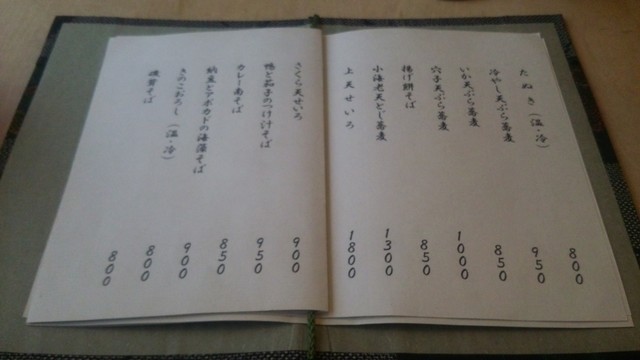 たぬき（温・冷） 800
冷やし天ぷら蕎麦 950
いか天ぷら蕎麦 850
穴子天ぷら蕎麦 1000
揚げ餅そば 850
小海老天とじ蕎麦 1300
上天せいろ 1800
さくら天せいろ 900
鴨と茄子のつけ汁そば 950
カレー南そば 850
納豆とアボカドの海藻そば 900
きのこおろし（温・冷） 800
そば 800